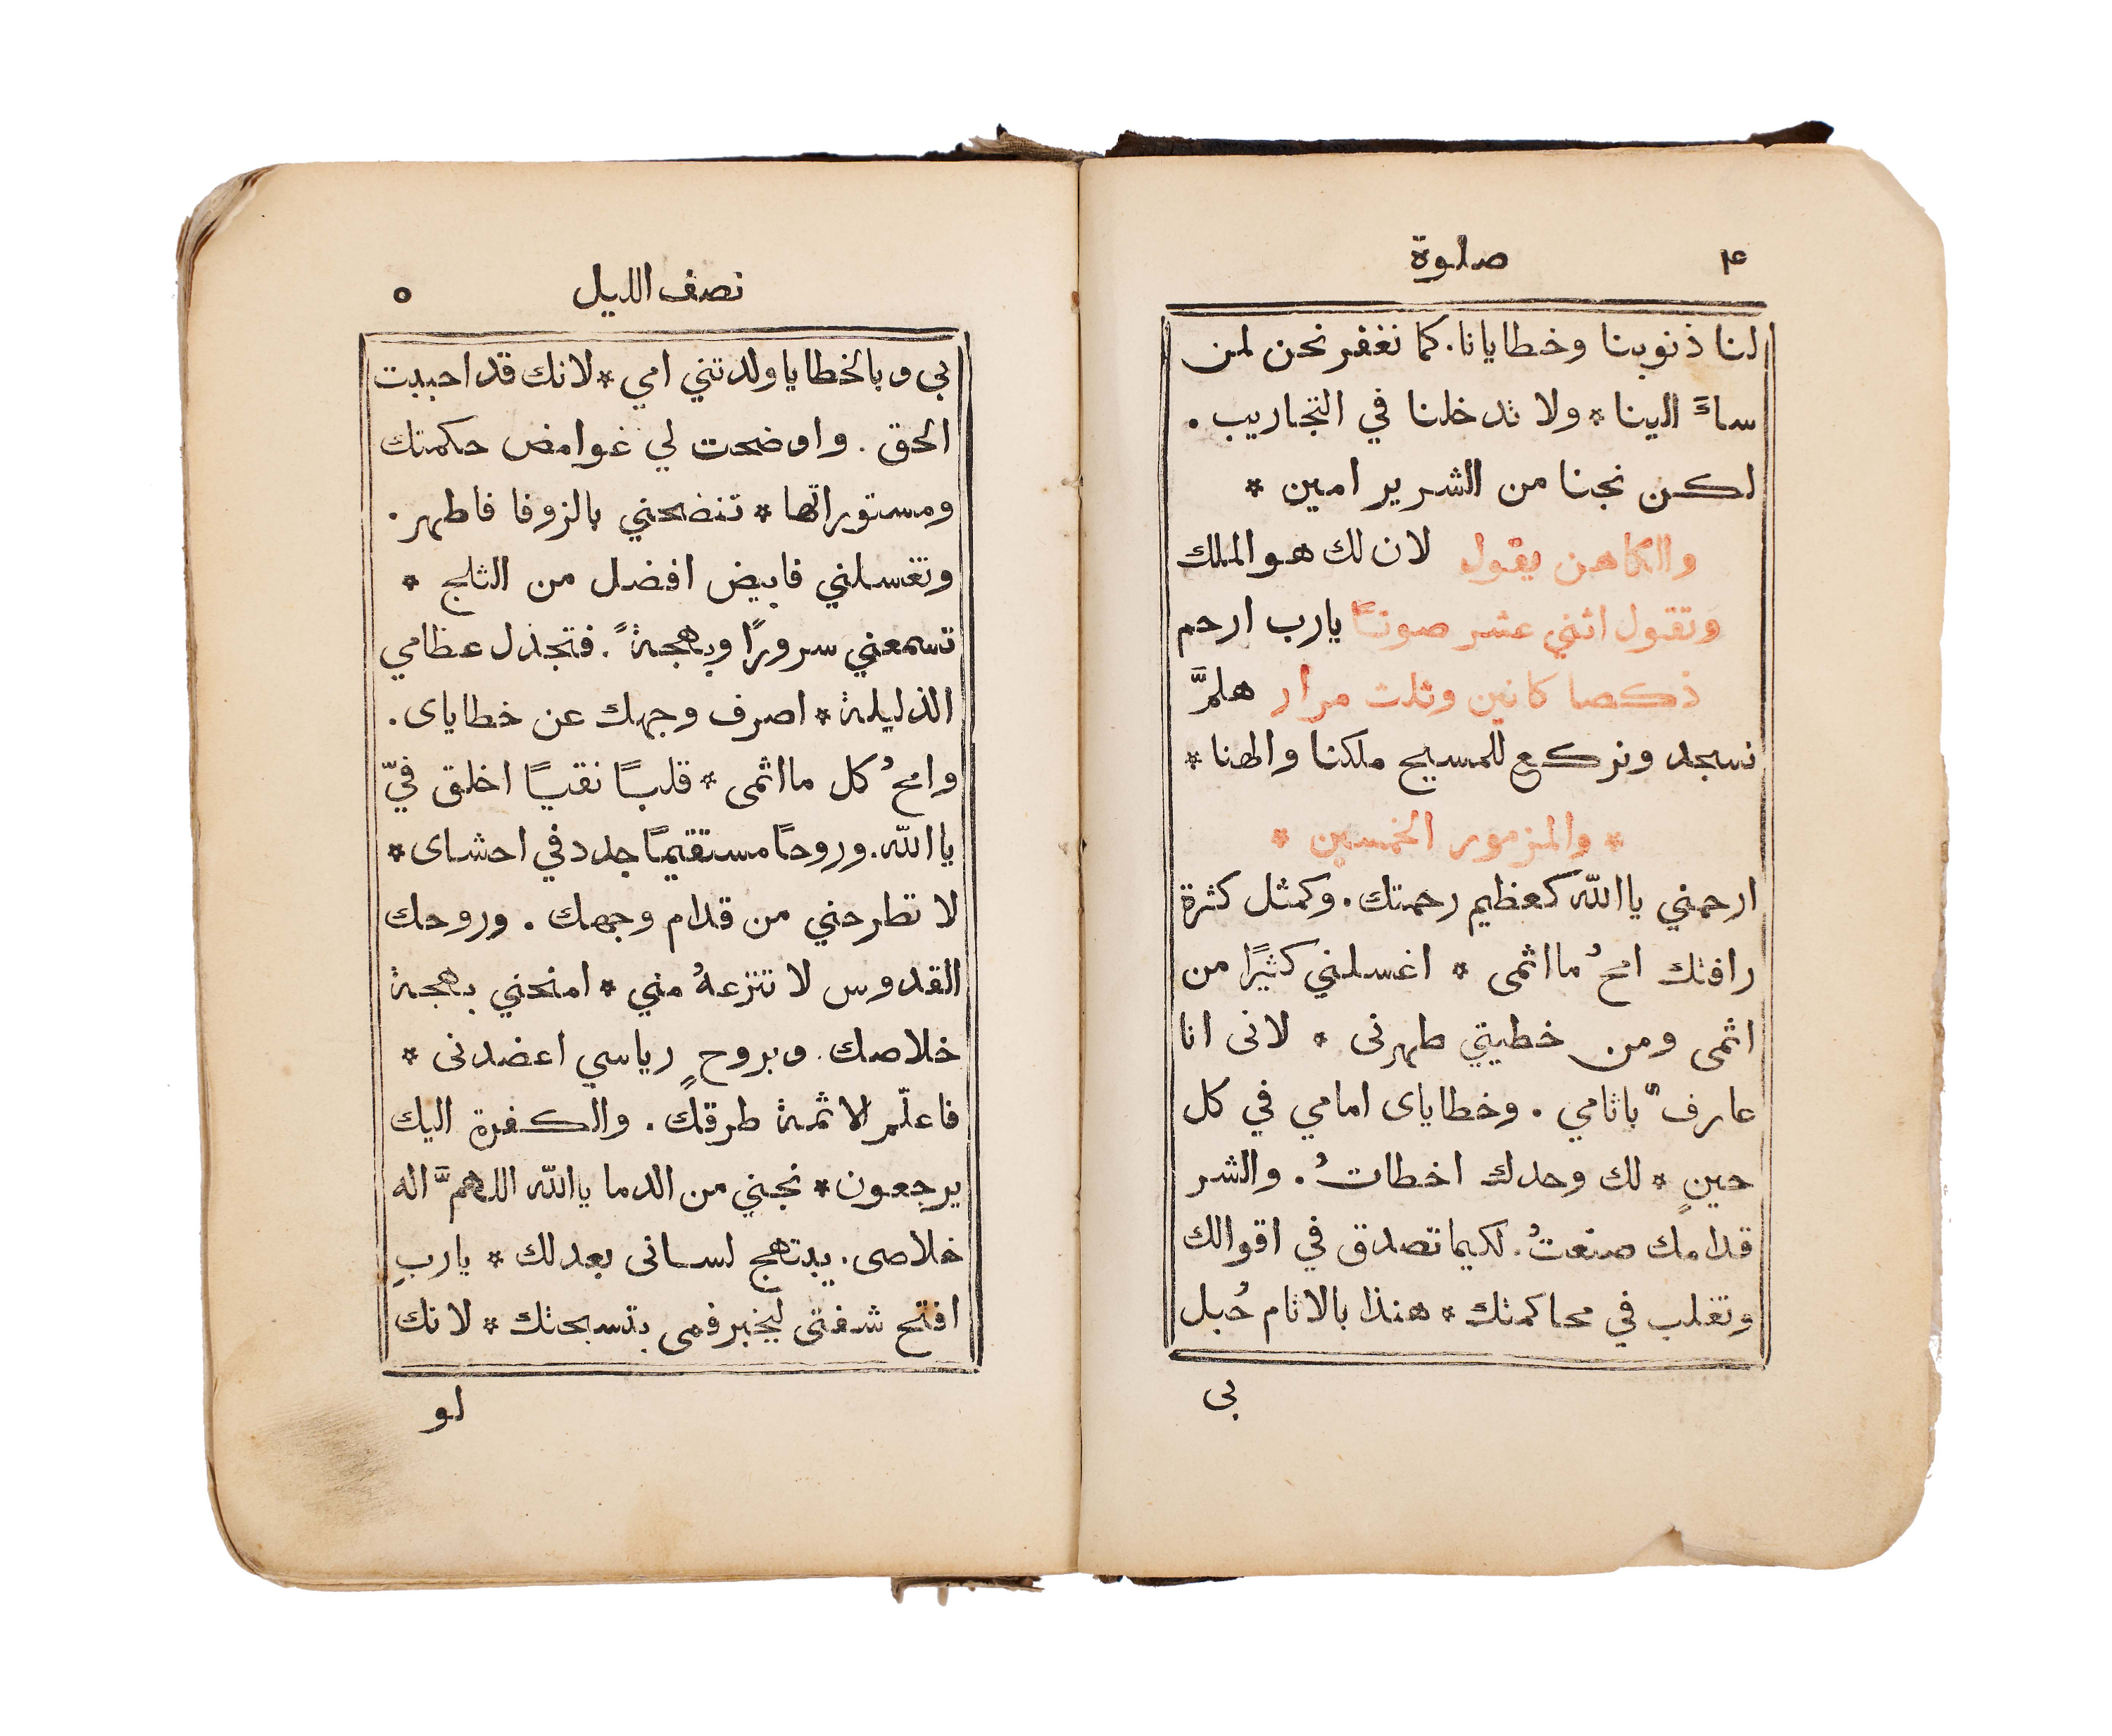 ٤ صلوة
لنا ذنوبنا وخطايانا. كما نغفر نحن لمن
ساءَ الينا * ولا تدخلنا في التجاريب.
لكن نجنا من الشرير امين *
والكاهن يقول لان لك هو الملك
وتقول اثني عشر صوتاً يارب ارحم
ذكصا كانين وثلث مرار هلمَّ
نسجد ونركع للمسيح ملكنا والهنا *
* والمزمور الخمسين *
ارحمني ياالله كعظيم رحمتك. وكمثل كثرة
رافتك امحُ مااثمى * اغسلني كثيرًا من
اثمى ومن خطيتي طهرنى * لانى انا
عارفٌ باثامي. وخطاياى امامي في كل
حينٍ * لك وحدك اخطاتُ. والشر
قدامك صنعتُ. لكيما تصدق في اقوالك
وتغلب في محاكمتك * هنذا بالاثام حُبل
بى
نصف الليل ٥
بي وبالخطايا ولدتني امي * لانك قد احببت
الحق. واوضحت لي غوامض حكمتك
ومستوراتها * تنضحني بالزوفا فاطهر.
وتغسلني فابيض افضل من الثلج *
تسمعني سرورًا وبهجةً. فتجذل عظامي
الذليلة * اصرف وجهك عن خطاياى.
وامحُ كل مااثمى * قلبًا نقيًا اخلق فيّ
ياالله. وروحًا مستقيمًا جدد في احشاى *
لا تطرحني من قدام وجهك. وروحك
القدوس لا تنزعهُ مني * امنحني بهجة
خلاصك. وبروحٍ رياسي اعضدنى *
فاعلّم الاثمة طرقك. والكفرة اليك
يرجعون * نجني من الدما ياالله اللهمَّ اله
خلاصى. يبتهج لسانى بعدلك * ياربِ
افتح شفتى ليخبر فمى بتسبحتك * لانك
لو